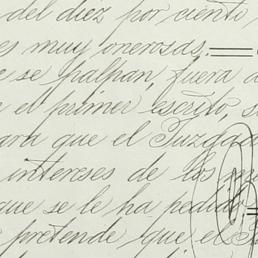 del diez por ciento
es muy onerosas.
e se palpan, fuera
el primer escrito,
ara que el Juzgad
intereses de los
que se le ha pedido
pretende que el